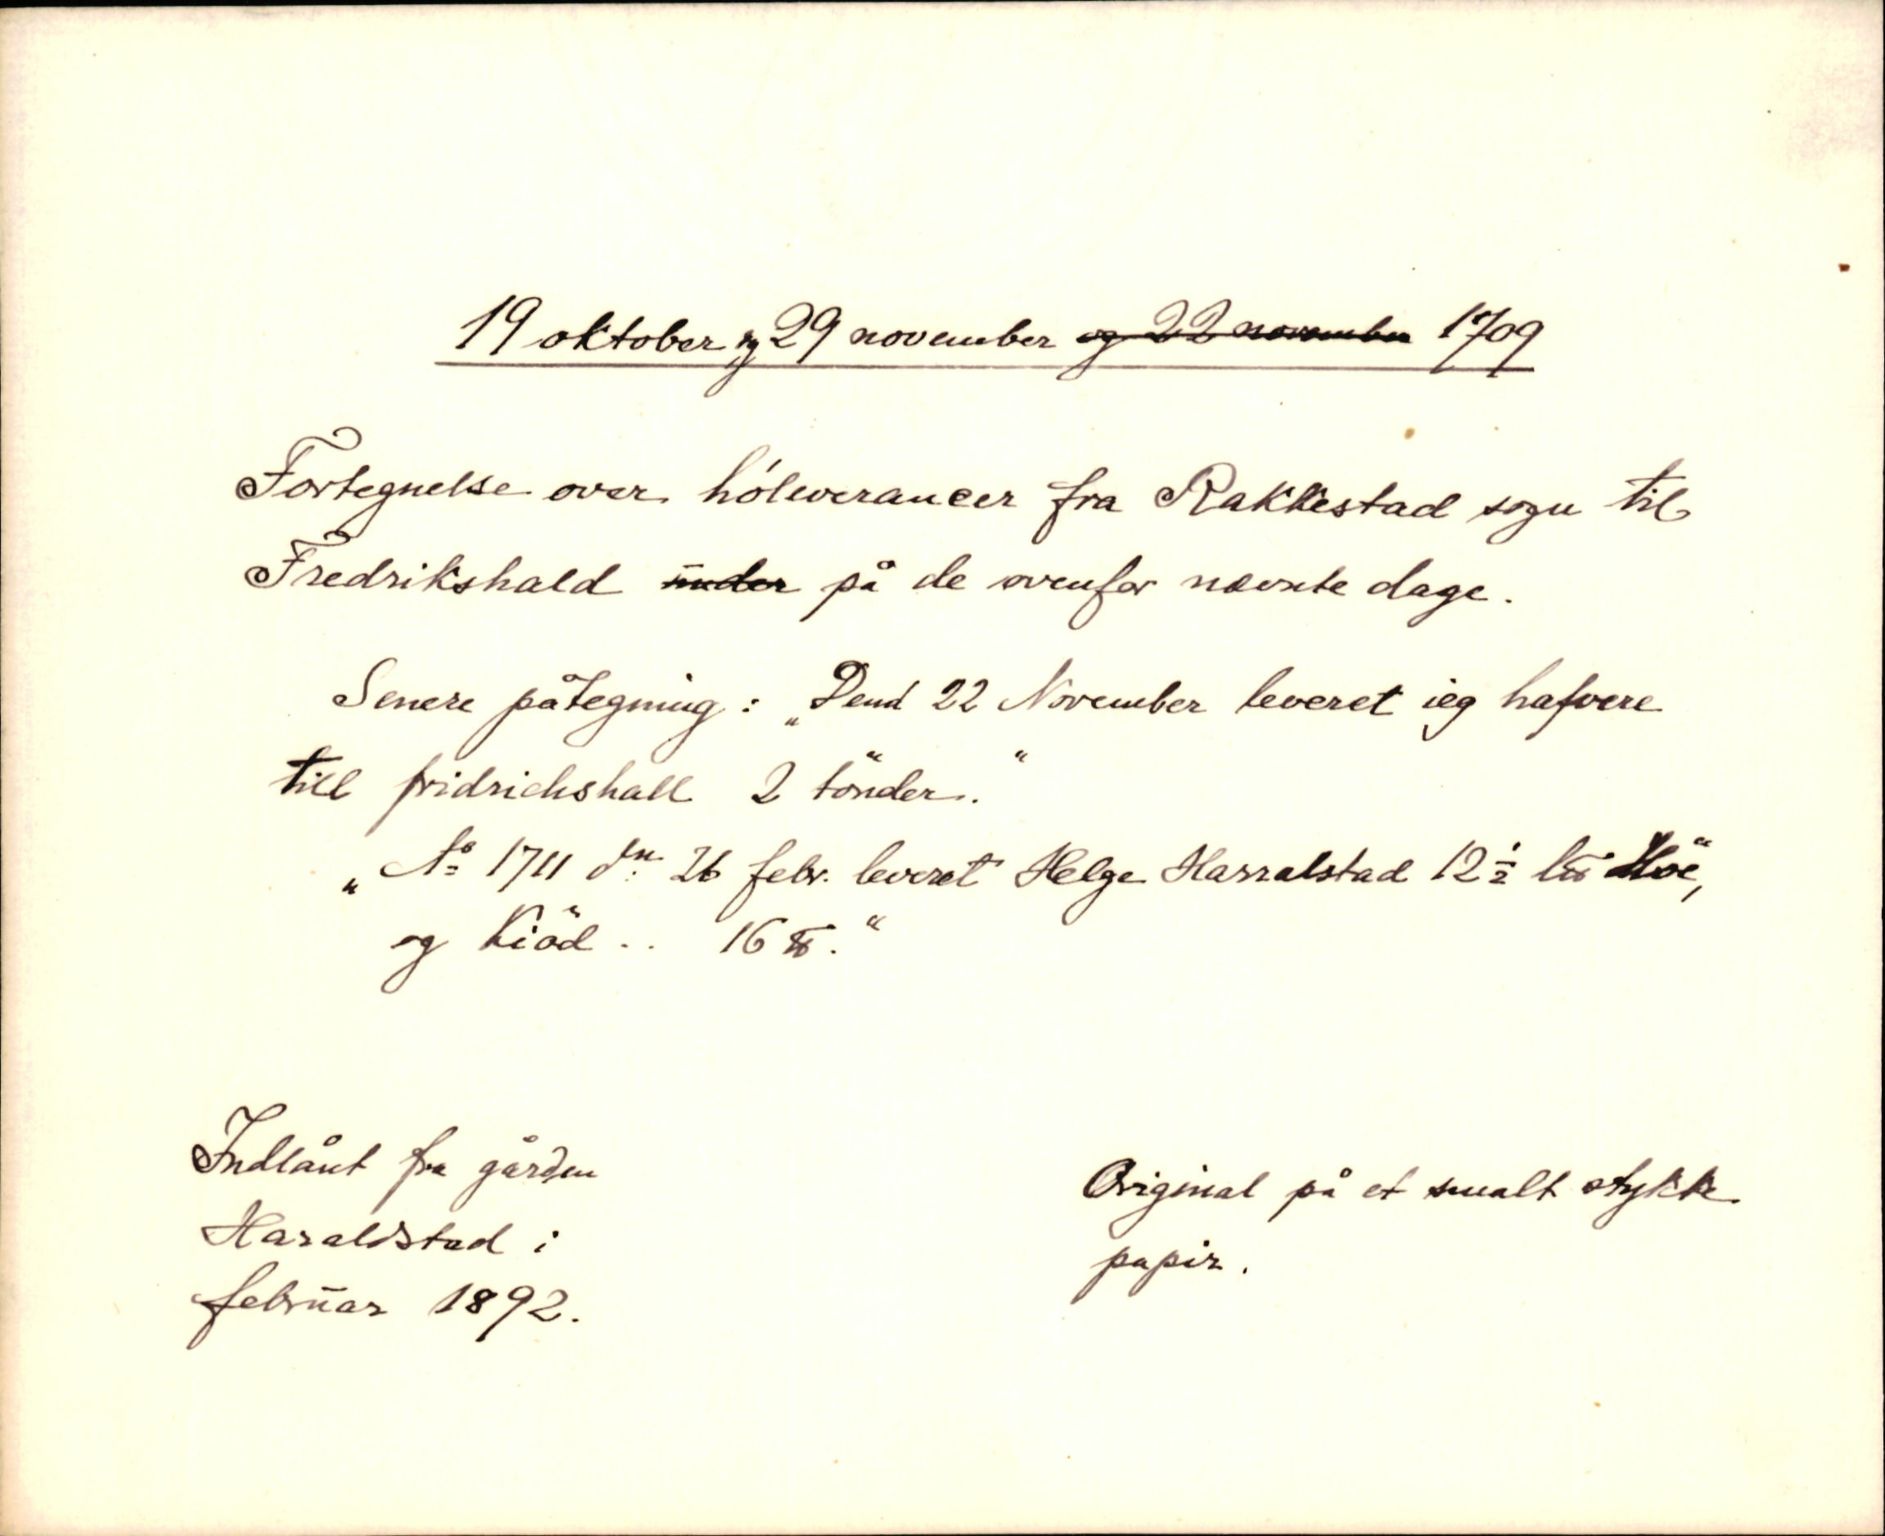 19 oktober og 29 november og 22 november 1709
Fortegnelse over hóleverancer fra Rakkestad sogn til
Fredrikshald under på de ovenfor nævnte dage.
Senere påtegning: „Dend 22 November leveret ieg hafvere
till fridrichshall 2 tönder.“
„No 1711 dn. 26 febr. leveret Helge Harralstad 12 1/2 l℔ Höe“,
og Kiöd .. 16 ℔.“
Indlånt fra gården
Haraldstad i
februar 1892.
Original på et smalt stykke
papir.